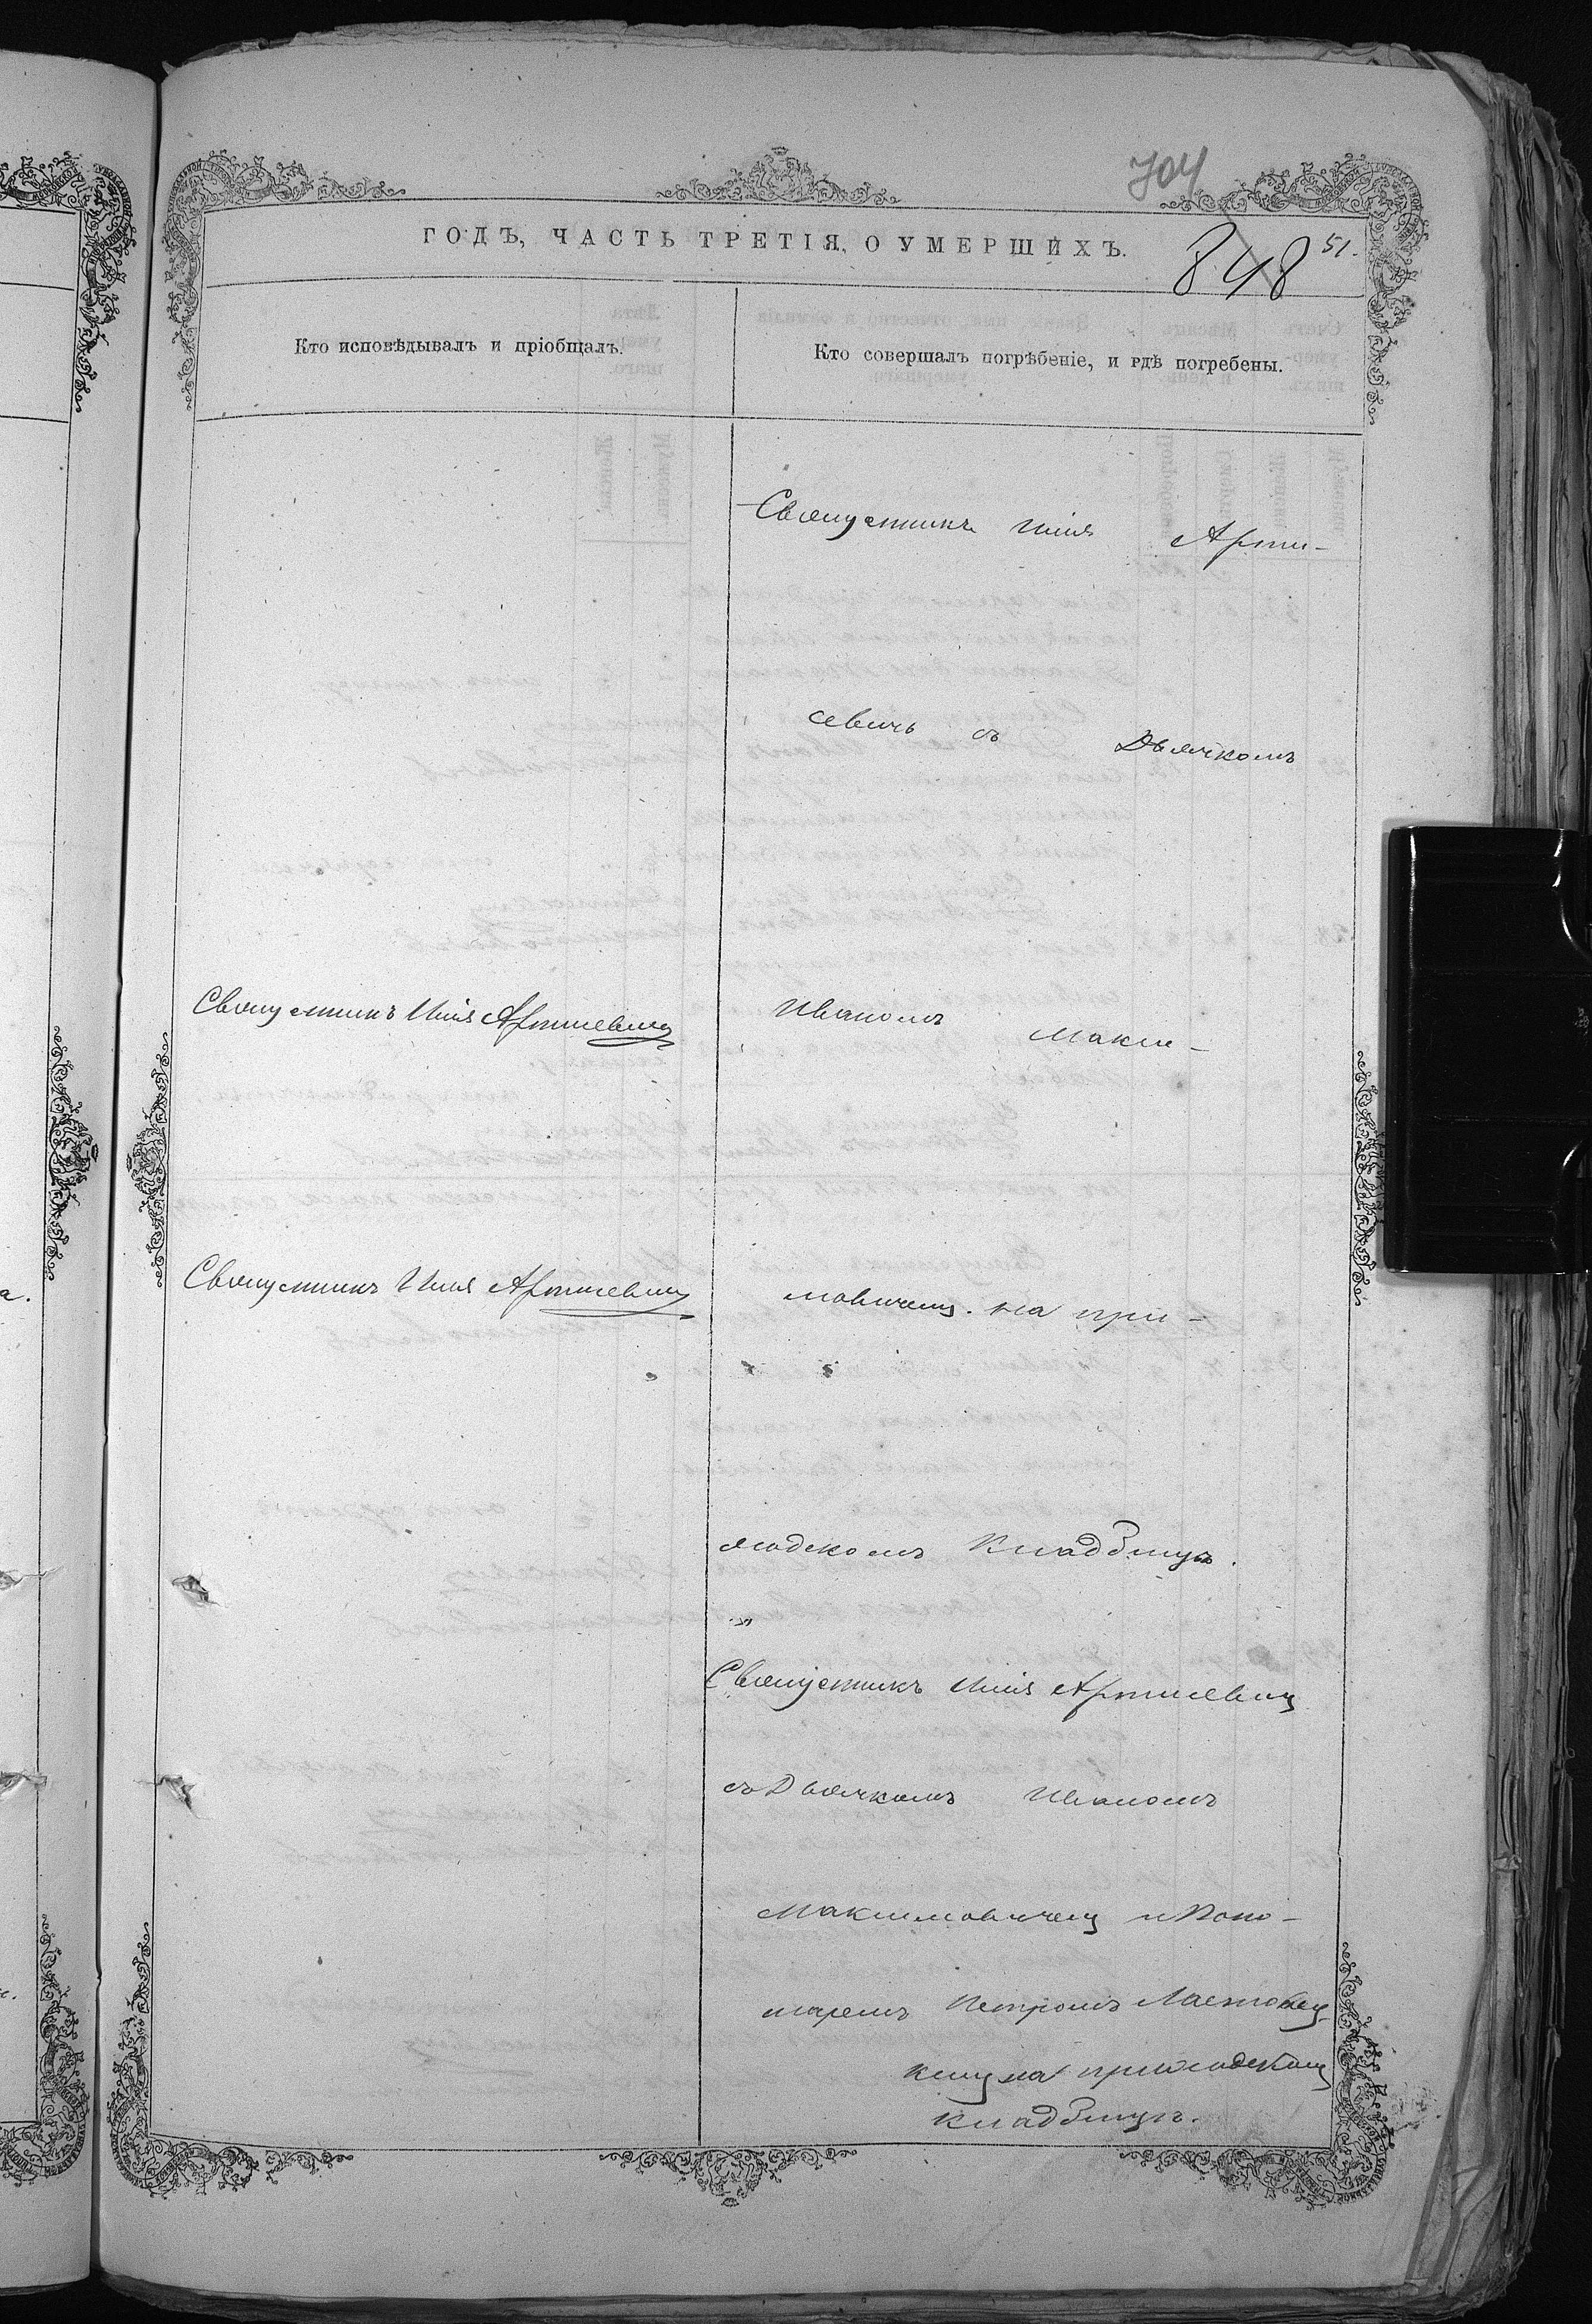 704
ГОДЪ, ЧАСТЬ ТРЕТІЯ, О УМЕРШИХЪ.
848
51.
Кто исповѣдывалъ и пріобщалъ.
Кто совершалъ погрѣбеніе, и гдѣ погребены.
Священникъ Илія Арти-
севичъ съ Дьячкомъ
Священникъ Илія Артисевич
Иваномъ Макси-
Священникъ Илія Артисевич
мовичем. на при-
ходскомъ Кладбищѣ.
„
Священникъ Илія Артисевич
съ Дьячкомъ Иваномъ
Максимовичем и Поно-
маремъ Петромъ
ким на приходском
кладбищѣ.